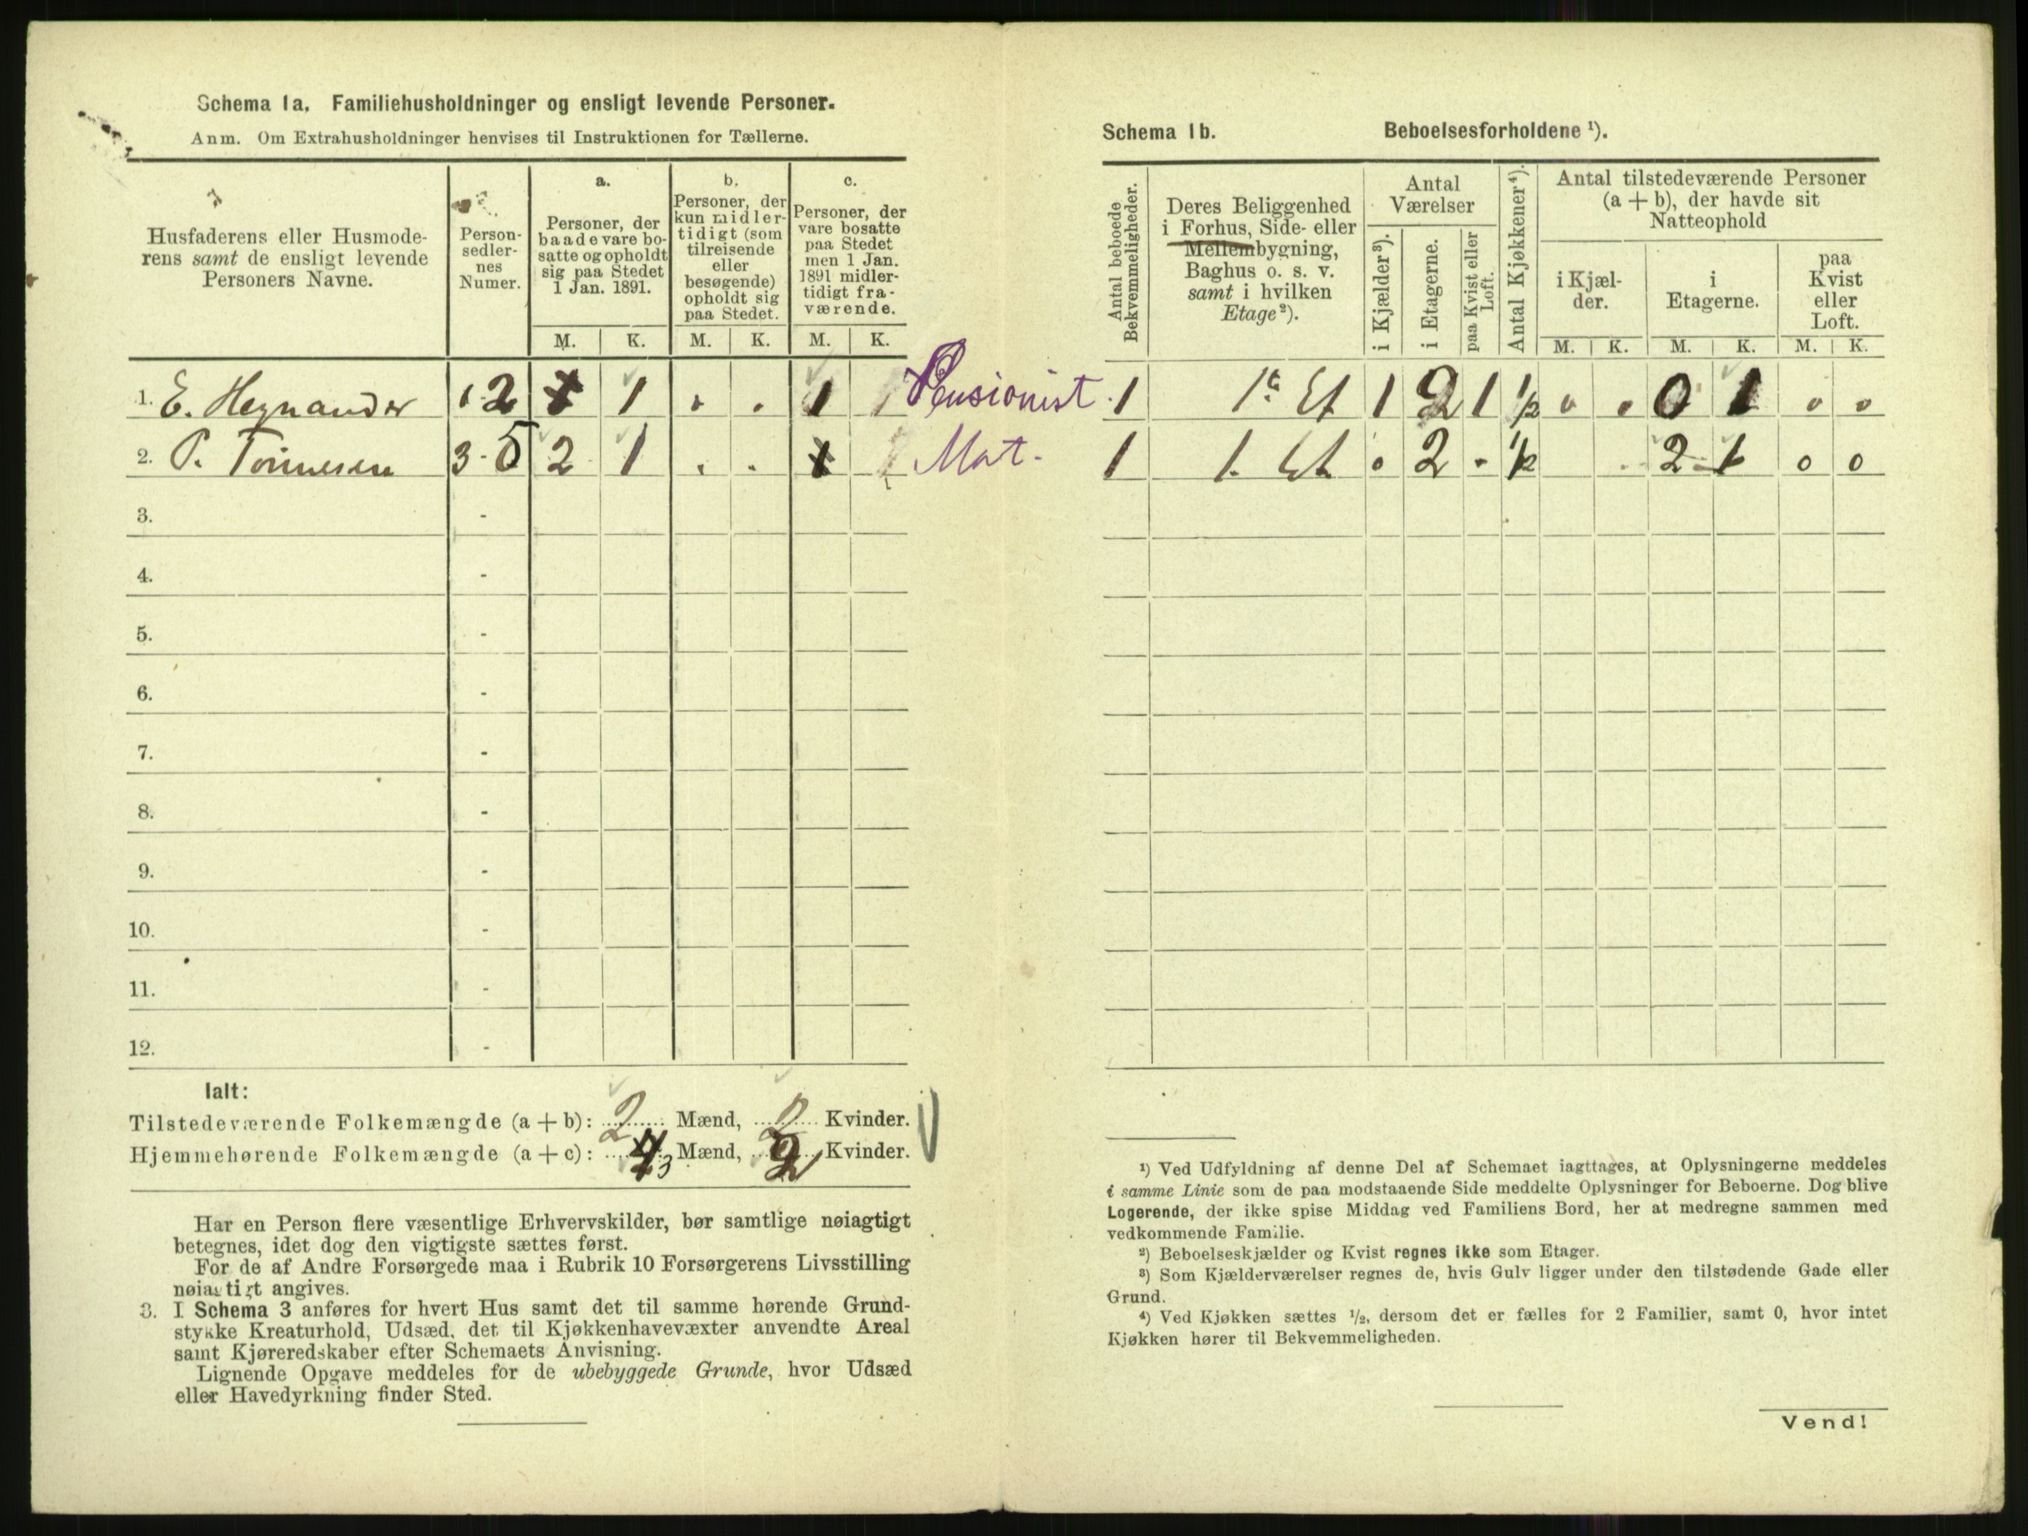 Schema 1a. Familiehusholdninger og ensligt levende Personer.
Anm. Om Extrahusholdninger henvises til Instruktionen for Tællerne.
Husfaderens eller Husmode-
rens samt de ensligt levende
Personers Navne.
Person-
sedler-
nes
Numer.
a.
Personer, der
baade vare bo-
satte og opholdt
sig paa Stedet
1 Jan. 1891.
b.
Personer, der
kun midler-
tidigt (som
tilreisende
eller
besøgende)
opholdt sig
paa Stedet.
c.
Personer, der
vare bosatte
paa Stedet
men 1 Jan.
1891 midler-
tidigt fra-
værende.
M. K. M. K. M. K.
1. E. Heynander 1-2 1 . . 1 Pensionist
2. P. Tönnesen 3-5 2 1 . . Mat.
3. -
4. -
5. -
6. -
7. -
8. -
9. -
10. -
11. -
12. -
Ialt:
Tilstedeværende Folkemængde (a + b): 2 Mænd, 2 Kvinder.
Hjemmehørende Folkemængde (a + c): 3 Mænd, 2 Kvinder.
Har en Person flere væsentlige Erhvervskilder, bør samtlige nøiagtigt
betegnes, idet dog den vigtigste sættes først.
For de af Andre Forsørgede maa i Rubrik 10 Forsørgerens Livsstilling
nøiagtigt angives.
3. I Schema 3 anføres for hvert Hus samt det til samme hørende Grund-
stykke Kreaturhold, Udsæd, det til Kjøkkenhavevæxter anvendte Areal
samt Kjøreredskaber efter Schemaets Anvisning.
Lignende Opgave meddeles for de ubebyggede Grunde, hvor Udsæd
eller Havedyrkning finder Sted.
Schema 1b. Beboelsesforholdene ¹).
Antal beboede
Bekvemmeligheder.
Deres Beliggenhed
i Forhus, Side- eller
Mellembygning,
Baghus o. s. v.
samt i hvilken
Etage²).
Antal
Værelser
i Kjælder³).
i Etagerne.
paa Kvist eller
Loft.
Antal Kjøkkener⁴).
Antal tilstedeværende Personer
(a + b), der havde sit
Natteophold
i Kjæl-
der.
i
Etagerne.
paa
Kvist
eller
Loft.
M. K. M. K. M. K.
1 1ste Et 1 2 1 ½ 0 . 0 1 0 0
1 1. Et . 2 . ½ . 2 1 0 0
¹) Ved Udfyldning af denne Del af Schemaet iagttages, at Oplysningerne meddeles
i samme Linie som de paa modstaaende Side meddelte Oplysninger for Beboerne. Dog blive
Logerende, der ikke spise Middag ved Familiens Bord, her at medregne sammen med
vedkommende Familie.
²) Beboelseskjælder og Kvist regnes ikke som Etager.
³) Som Kjælderværelser regnes de, hvis Gulv ligger under den tilstødende Gade eller
Grund.
⁴) Ved Kjøkken sættes ½, dersom det er fælles for 2 Familier, samt 0, hvor intet
Kjøkken hører til Bekvemmeligheden.
Vend!